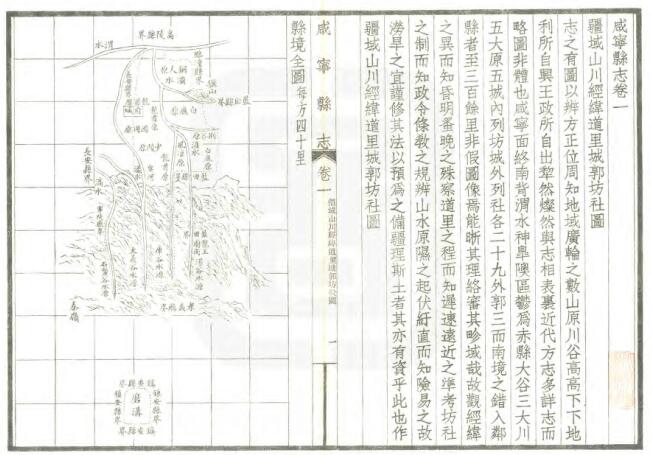 咸寧縣志卷一
疆域山川經緯道里城郭坊社圖
志之有圖以辨方正位周知地域廣輪之數山原川谷高高下下地
利所自興王政所自出犁然燦然與志相表裏近代方志多詳志而
略圖非體也咸寧面終南背渭水神皐隩區鬱爲赤縣大谷三大川
五大原五城內列坊城外列社各二十九外郭三而南境之錯入鄰
縣者至三百餘里非假圖像焉能晰其理絡審其畛域哉故觀經緯
之異而知昏明蚤晚之殊察道里之程而知遲速遠近之準考坊社
之制而知政令條教之規辨山水原隰之起伏紆直而知險易之故
澇旱之宜謹修其法以預爲之備疆理斯土者其亦有資乎此也作
疆域山川經緯道里城郭坊社圖
咸寧縣志
卷一
疆域山川經緯道里城郭坊社圖
一
縣境全圖每方四十里
高陵縣界
渭水
臨潼縣界
銅人原
灞水
驪山
藍田縣界
白鹿原
長安縣界
龍首原
鴻固原
少陵原
滻水
長安縣界
藍田
庫谷水源
大義谷水源
石鱉谷水源
湯谷水源
孝義廳界
秦嶺
鎮安縣界
鎮安縣界
鎮安縣界